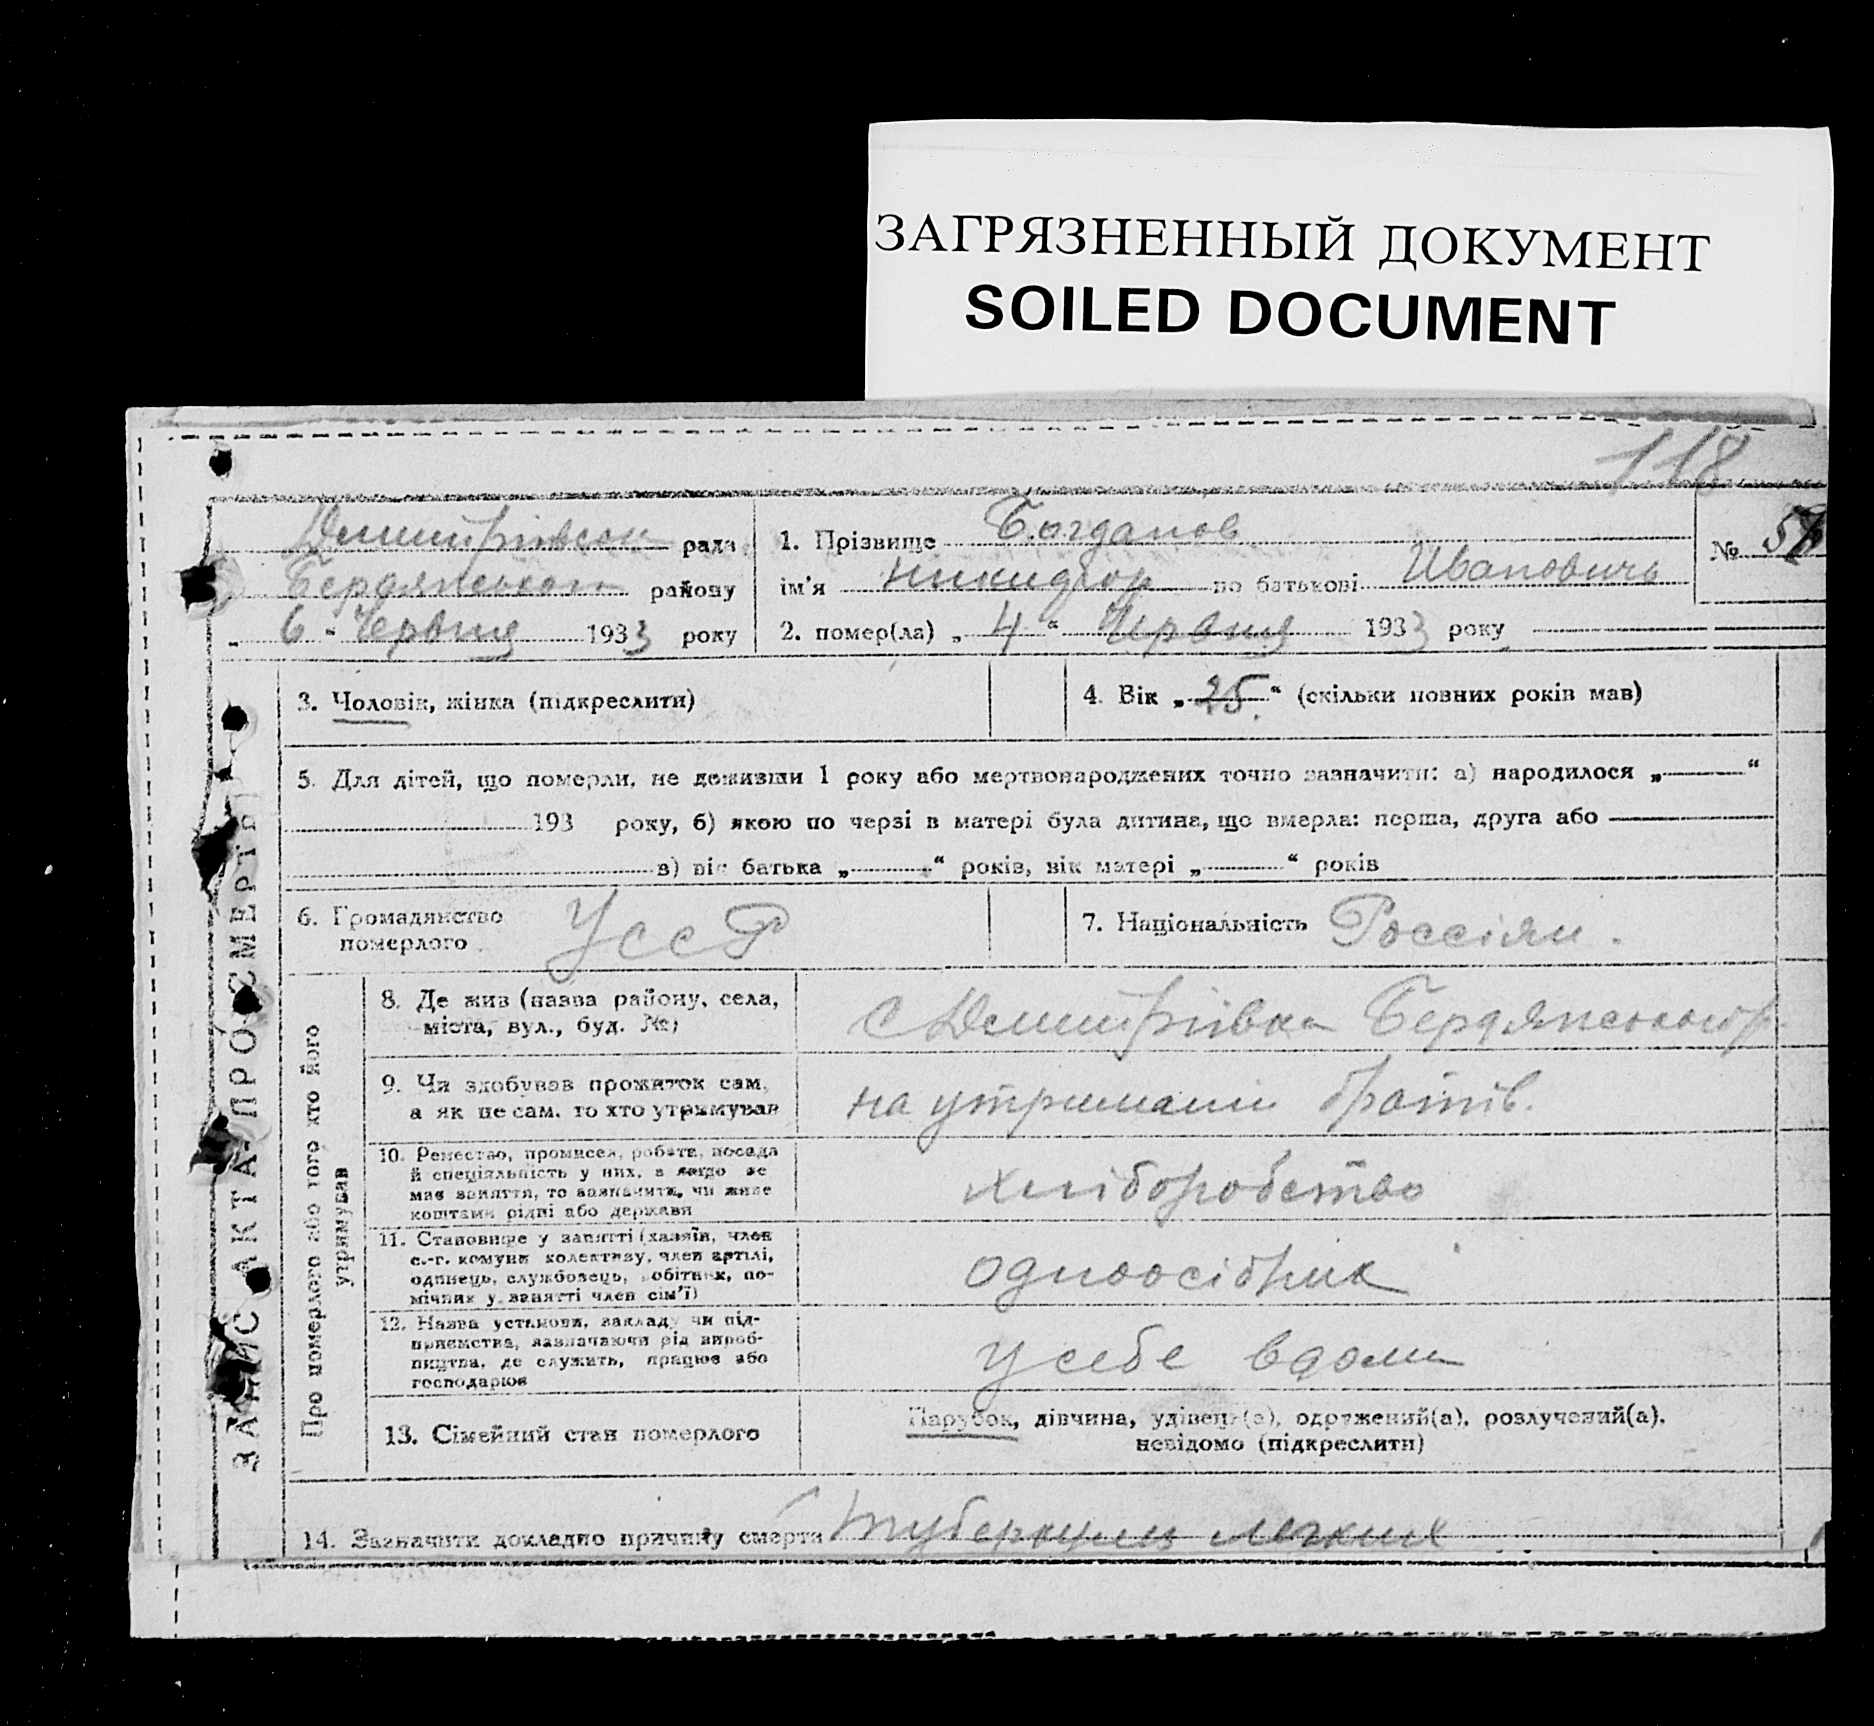 ЗАГРЯЗНЕННЫЙ ДОКУМЕНТ
SOILED DOCUMENT
118
Дмитрівськ рада
Бердянського району
„ 6 " Червня 1933 року
1. Прізвище Богданов
ім'я Никифор по батькові Иванович
2. помер(ла) „ 4 “ Червня 1933 року
№ 5
ЗАПИС АКТА ПРО СМЕРТЬ
3. Чоловік, жінка (підкреслити)
4. Вік „ 25 “ (скільки повних років мав)
5. Для дітей, що померли, не доживши 1 року або мертвонароджених точно зазначити: а) народилося „ “
193 року, б) якою по черзі в матері була дитина, що вмерла: перша, друга або
в) вік батька „ “ років, вік матері „ “ років
6. Громадянство
померлого УССР
7. Національність Россіян.
Про померлого або того хто його
утримував
8. Де жив (назва району, села,
міста, вул., буд. №)
с Дмитрівка Бердянського р
9. Чи здобував прожиток сам,
а як не сам, то хто утримував
на утриманні братів.
10. Ремество, промисел, робота, посада
й спеціяльність у них, а якщо не
мав заняття, то зазначити, чи живе
коштами рідні або держави
хліборобство
11. Становище у занятті (хазяїн, член
с.-г. комуни колективу, член артілі,
одинець, службовець, робітник, по-
мічник у занятті член сім'ї)
одноосібник
12. Назва установи, закладу чи під-
приємства, зазначаючи рід вироб-
ництва, де служить, працює або
господарює
у себе вдома
13. Сімейний стан померлого
Парубок, дівчина, удівець(а), одружений(а), розлучений(а),
невідомо (підкреслити)
14. Зазначити докладно причину смерти туберкульоз легких